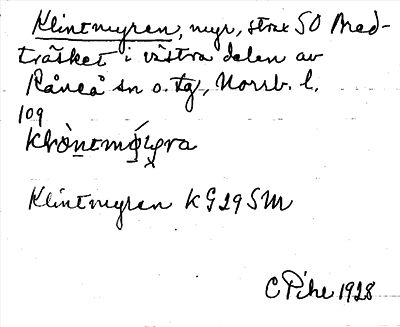 Klintmyren, myr, strax SO Bred-
träsket i västra delen av
Råneå sn o. tg, Norrb. l.
109
Klintmyren KG29SM
C Pihl 1928